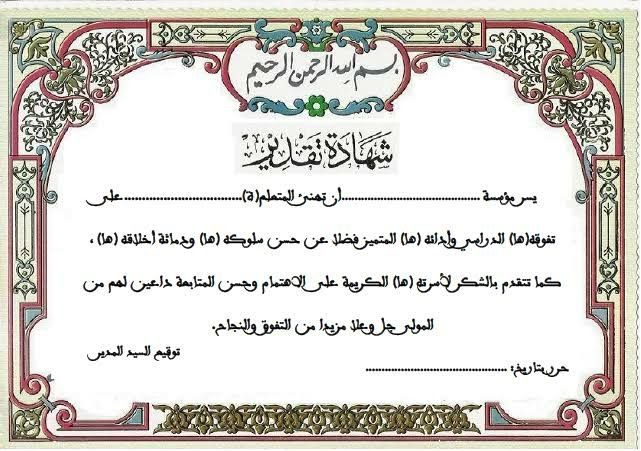 بسم الله الرحمن الرحيم
شهادة تقدير
يسر مؤسسة ........................................ أن تهنئ المتعلم(ة)................................... على
تفوقه(ها) الدراسي وأدائه (ها) المتميز فضلا عن حسن سلوكه (ها) ودماثة أخلاقه (ها) ،
كما تتقدم بالشكر لأسرته (ها) الكريمة على الاهتمام وحسن المتابعة داعين لهم من
المولى جل وعلا مزيدا من التفوق والنجاح.
حرر بتاريخ: ........................................
توقيع السيد المدير